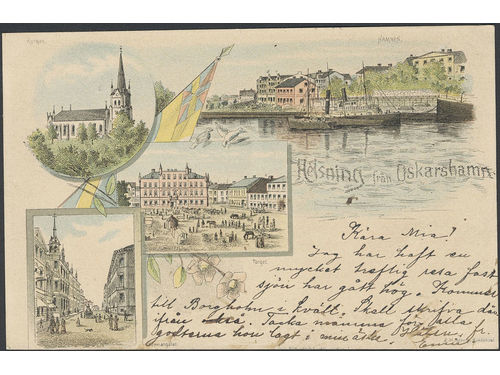 Kyrkan.
HAMNEN.
Hälsning från Oskarshamn.
Torget.
Kära Mia!
Jag har haft en
mycket treflig resa fast
sjön har gått hög. Kommer
till Borgholm i kväll. Skall skrifva där
ifrån. Tacka mamma för alla
hon lagt i